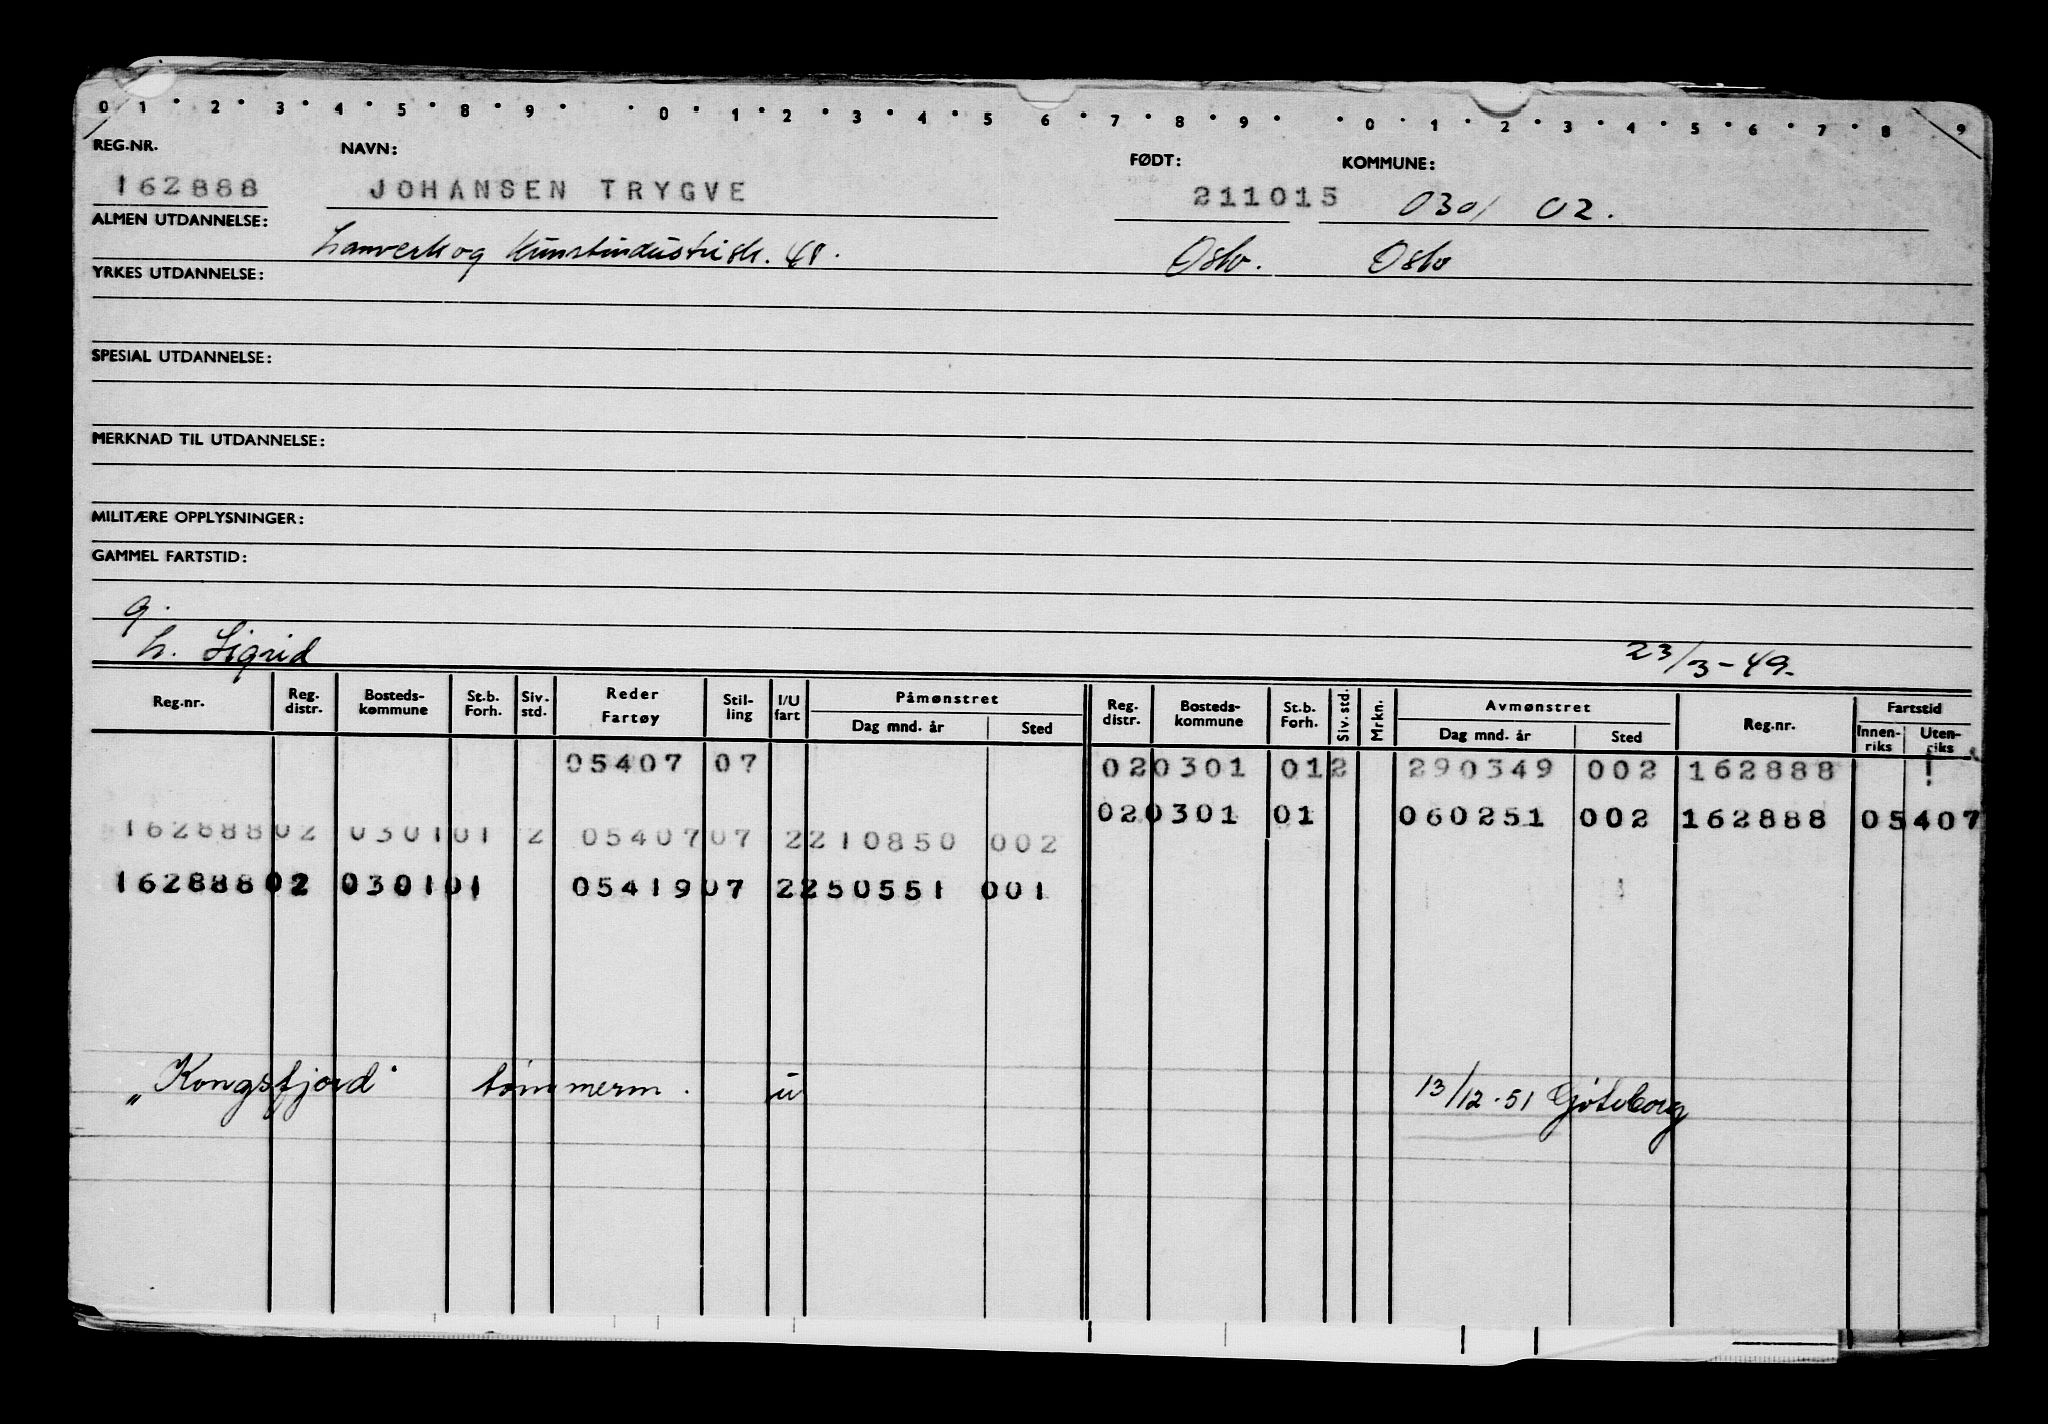 0 1 • 2 • 3 • 4 • 5 • 8 • 9 • • 0 • 1 • 2 • 3 • 4 • 5 6 • 7 • 8 • 9 • • 0 • 1 • 2 • 3 • 4 • 5 • 6 • 7 • 8 9
REG.NR. NAVN: FØDT: KOMMUNE:
162888 JOHANSEN TRYGVE 211015 0301 02.
ALMEN UTDANNELSE:
og Kunstindustrisk. Oslo. Oslo
YRKES UTDANNELSE:
SPESIAL UTDANNELSE:
MERKNAD TIL UTDANNELSE:
MILITÆRE OPPLYSNINGER:
GAMMEL FARTSTID:
g.
h. Sigrid 23/3-49.
Reg.nr. Reg. distr. Bosteds-kommune St.b. Forh. Siv. std. Reder Fartøy Stil-ling I/U fart Påmønstret Dag mnd. år Sted Reg. distr. Bosteds-kommune St.b. Forh. Siv. std. Mrkn. Avmønstret Dag mnd. år Sted Reg.nr. Fartstid Innen-riks Uten-riks
05407 07 020301 012 290349 002 162888
020301 01 060251 002 162888 05407
16288802 030101 2 0540707 2210850 002
16288802 030101 0541907 2250551 001
„Kongsfjord" tømmerm. u 13/12.51 Gøteborg